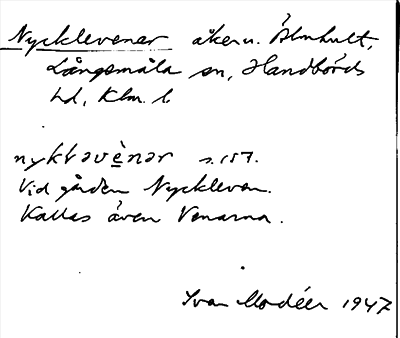 Nycklevener åkern. Älmhult,
Långemåla sn, Handbörds
hd, Klm. l
nykləvènər s. 157.
Vid gården Nyckleven.
Kallas även Venarna.
Ivar Modéer 1947